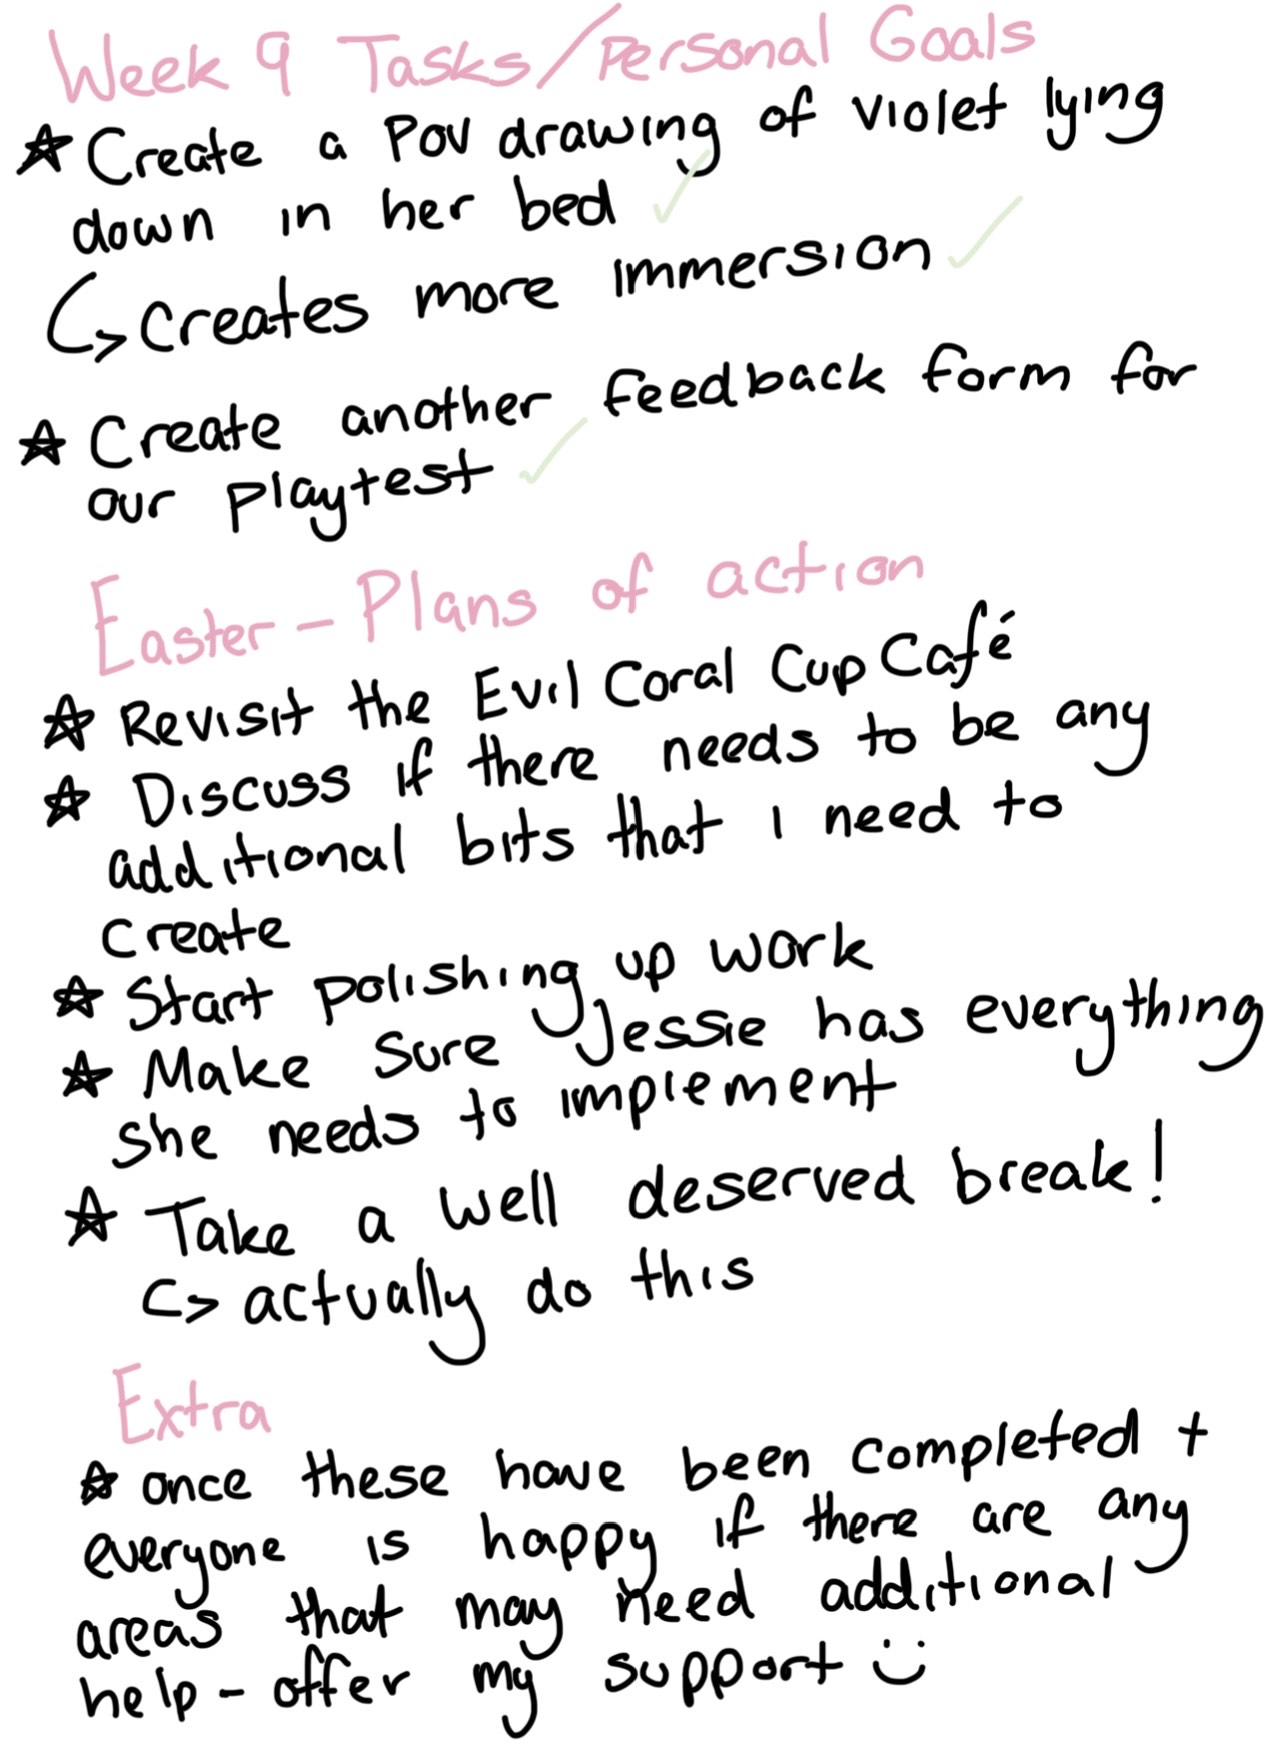 Week 9 Tasks/Personal Goals
☆ Create a POV drawing of violet lying
down in her bed ✓
↳ Creates more immersion ✓
☆ Create another feedback form for
our playtest ✓
Easter - Plans of action
☆ Revisit the Evil Coral Cup Café
☆ Discuss if there needs to be any
additional bits that I need to
create
☆ Start polishing up work
☆ Make sure Jessie has everything
she needs to implement
☆ Take a well deserved break!
↳ actually do this
Extra
☆ once these have been completed +
everyone is happy if there are any
areas that may need additional
help - offer my support :)